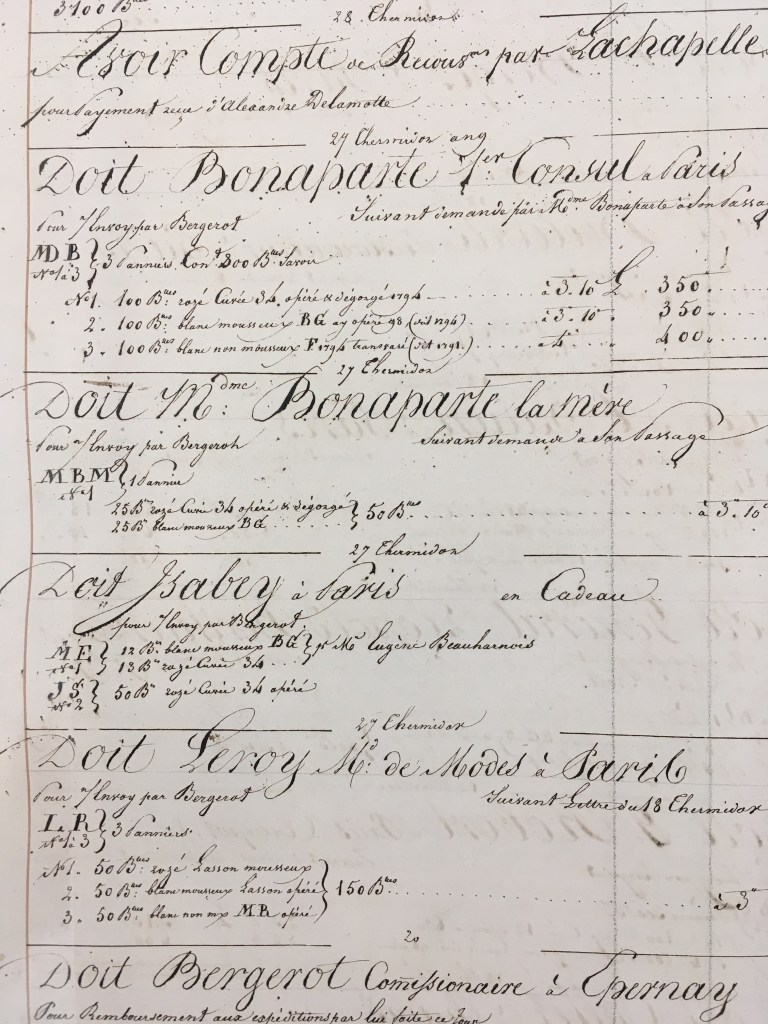 3100 B.nes
28 Thermidor.
Avoir Compte de par Lachapelle
pour Payement d'Alexandre Delamotte
27 Thermidor
Doit Bonaparte 1.er Consul a Paris
Pour l'Envoy par Bergerot Suivant demande par M.dme Bonaparte à Son Passage
MDB 3 Panniers Con.t 300 B.nes Savoir
N.os 1 à 3
N.o 1. 100 B.nes rozé Cuvée 34. opéré & dégorgé 1794 à 3. 10 £ 350.
2. 100 B.nes blanc mousseux BG ay opéré 98 à 3. 10 350.
3. 100 B.nes blanc non mousseux F 1794 à 4 400.
27 Thermidor
Doit M.dme: Bonaparte la mère
Pour l'Envoy par Bergerot Suivant demande a Son Passage
MBM 1 Pannier
N.o 1
25 B.nes rozé Cuvée 34 opéré & dégorgé
25 B.s blanc mousseux BG 50 B.nes à 3. 10
27 Thermidor
Doit Isabey à Paris en Cadeau
pour l'Envoy par Bergerot
ME 12 B.s blanc mousseux BG p.r M.r Eugène Beauharnois
N.o 1 13 B.s rozé Cuvée 34
JS 50 B.s rozé Cuvée 34 opéré
N.o 2
27 Thermidor
Doit Leroy M.d: de Modes à Paris
Pour l'Envoy par Bergerot Suivant Lettre du 18 Thermidor
LR 3 Panniers
N.os 1 à 3
N.o 1. 50 B.nes: rozé Lasson mousseux
2. 50 B.nes blanc mousseux Lasson opéré 150 B.nes à 3
3. 50 B.nes blanc non mx MB opéré
20
Doit Bergerot Comissionaire à Epernay
Pour Remboursement aux expéditions par lui faite ce Jour